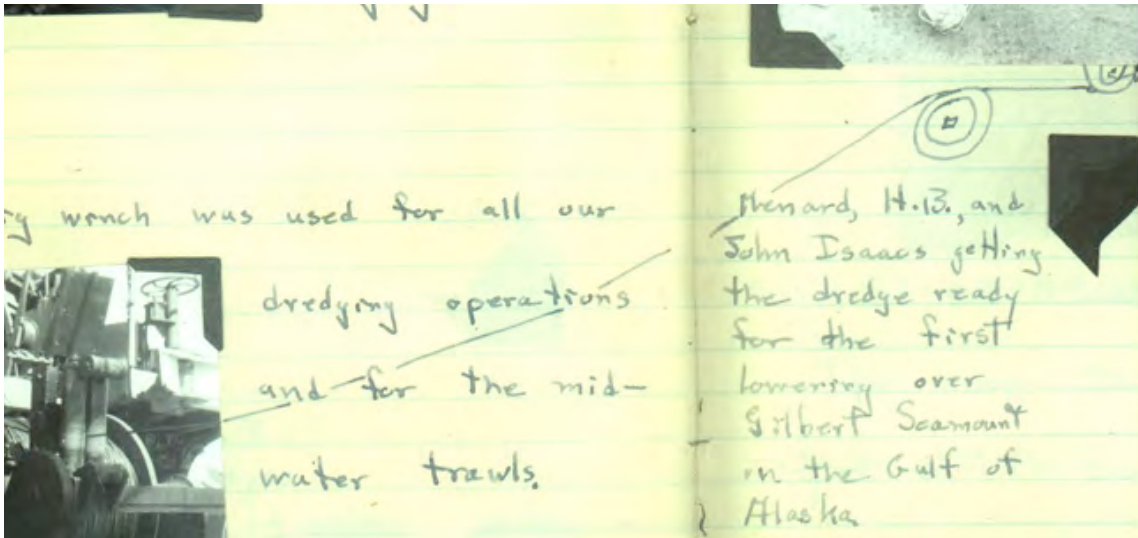 winch was used for all our
dredging operations
and for the mid-
water trawls.
Menard, H.B., and
John Isaacs getting
the dredge ready
for the first
lowering over
Gilbert Seamount
in the Gulf of
Alaska